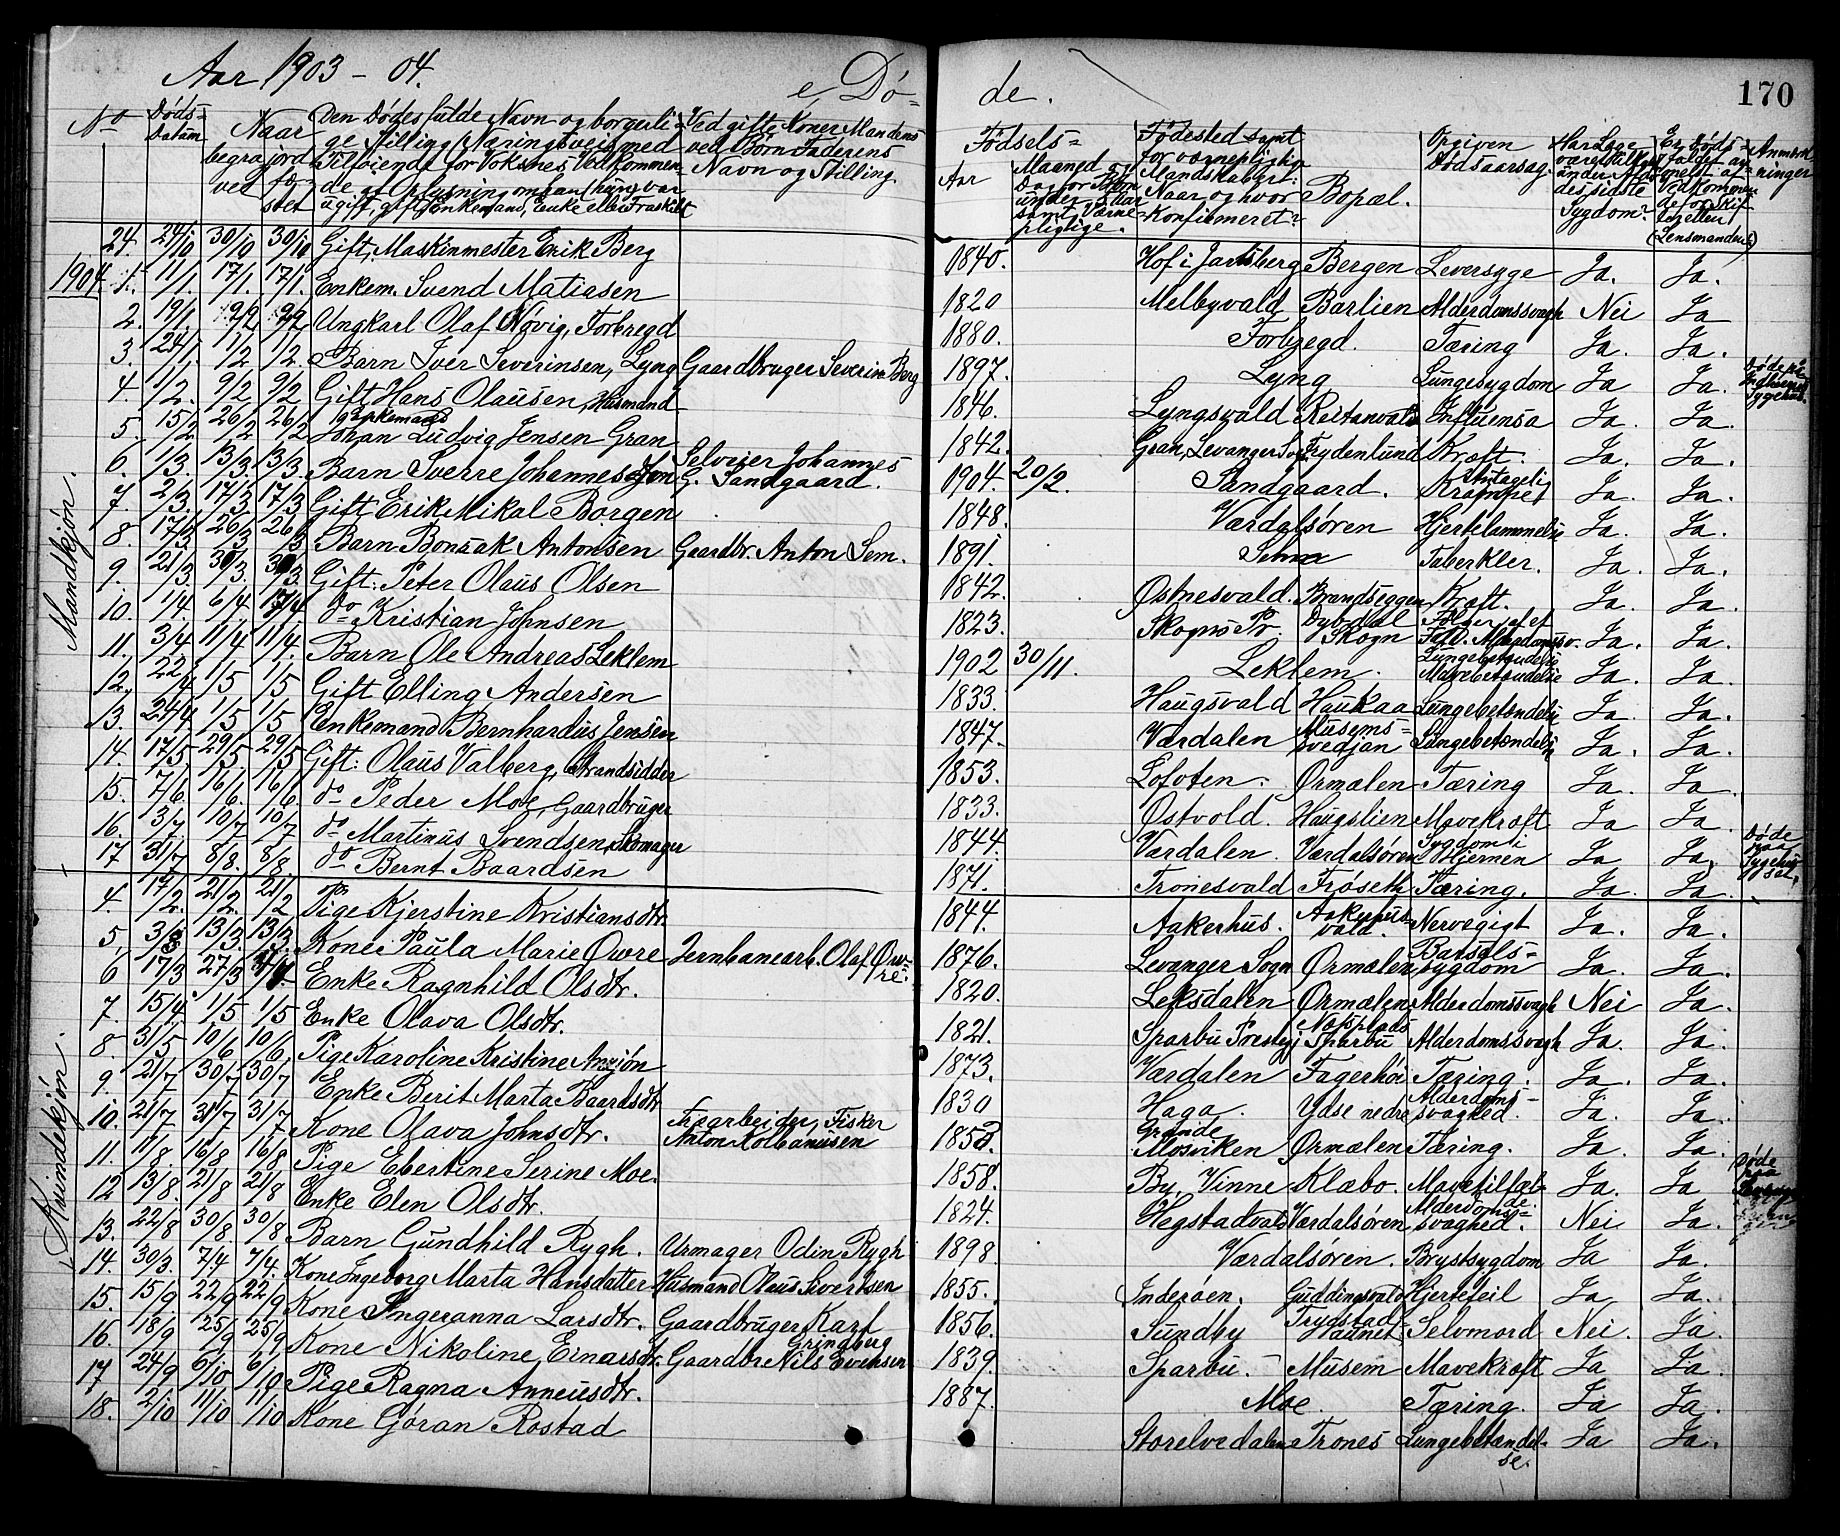 Aar 1903 - 04.
e, Dö-
de.
170
No
Döds-
Datum
Naar
begra-
vet
jord-
fæ-
stet
Den Dödes fulde Navn og borgerli-
ge Stilling (Næringsvei) med
Tilföiende for Voksnes Vedkommen-
de af Oplysning om han (hun) var
ugift, gift, Enkemand, Enke eller Fraskilt
Ved gifte Koner Mandens
ved Börn Faderens
Navn og Stilling.
Födsels-
Aar
Maaned og
Dag for Börn
under 2 Aar
samt Værne-
pligtige.
Födested samt
for værnepligtig
Mandskaber:
Naar og hvor
Konfirmeret?
Bopæl.
Opgiven
Dödsaarsag.
Har Læge
været tilkaldt
under Afdö-
des sidste
Sygdom?
Er Döds-
faldet an-
meldt af
Vedkommen-
de for Skif-
teretten
(Lensmanden)
Anmærk-
ninger
24. 24/10 30/10 30/10 Gift, Maskinmester Erik Berg 1840. Hof i Jarlsberg Bergen Leversyge Ja. Ja.
1904 1. 11/1 17/1. 17/1. Enkem. Svend Matiasen 1820 Melbyvald Barlien Alderdomssvagh Nei Ja
2. 19/1. 2/2 2/2 Ungkarl Olaf Növig, Forbregd 1880. Forbregd. Tæring Ja. Ja.
3. 24/1. 11/2 11/2. Barn Iver Severinsen, Lyng Gaardbruger Severin Berg 1897. Lyng Lungesygdom Ja Ja. Döde på Indherred Sygehus.
4. 1/2. 9/2 9/2 Gift Hans Olausen, Husmand 1846. Lyngsvald Reitanvald Influensa Ja. Ja.
5. 15/2 26/2 26/2 Enkemand Johan Ludvig Jensen Gran 1842. Gran, Levanger Sogn Frydenlund Kræft. Ja. Ja.
6. 1/3. 13/3 13/3. Barn Sverre Johannessen Selveier Johannes G. Sandgaard. 1904. 20/2. Sandgaard. Antagelig Krampe Ja. Ja.
7. 2/3 17/3 17/3 Gift Erik Mikal Borgen 1848. Værdalsören Hjertelammelse Ja. Ja.
8. 17/3 26/3 26/3 Barn Bonsak Antonsen Gaardbr. Anton Sem. 1891. Sem Tuberkler. Ja. Ja.
9. 21/3 30/3. 30/3. Gift: Peter Olaus Olsen 1842. Östnesvald. Brandseggen Kræft. Ja. Ja.
10. 1/4. 6/4 17/4 do Kristian Johnsen 1823. Skogns Pr. Dybdal Skogn Fölger af et Fald. Alderdomssv. Ja. Ja.
11. 3/4 11/4 11/4. Barn Ole Andreas Leklem 1902 30/11. Leklem. Lungebetændelse Mavebetændelse Ja. Ja.
12. 22/4 1/5 1/5 Gift Elling Andersen 1833. Haugsvald Haukaa Lungebetændelse Ja. Ja.
13. 24/4 1/5 1/5 Enkemand Bernhardus Jensen 1847. Værdalen Musems-svedjan Lungebetændelse Ja. Ja.
14. 17/5 29/5 29/5 Gift: Olaus Valberg, Strandsidder 1853. Lofoten. Örmælen Tæring Ja Ja.
15. 7/6. 16/6. 16/6. do Peder Moe, Gaardbruger 1833. Östvold. Haugslien Mavekræft Ja Ja
16. 13/7. 10/7 10/7 do Martinus Svendsen, Skomager 1844. Værdalen. Værdalsören Sygdom i Hjernen Ja Ja. Döde paa Sygehus
17 31/7 8/8. 8/8. do Bernt Baardsen 1871. Tronesvald Fröseth Tæring. Ja. Ja.
4. 17/2. 21/2. 21/2 Pige Kjerstine Kristiansdtr. 1844. Aakerhus. Aakerhus vald. Nervegigt Ja. Ja.
5. 3/3 13/3. 13/3. Kone Paula Marie Övre Jernbanearb. Olaf Övre. 1876. Levanger Sogn Örmælen Barsels-sygdom Ja. Ja.
6 17/3 27/3 Enke Ragnhild Olsdtr. 1820. Leksdalen Örmælen Alderdomssvagh Nei Ja.
7. 15/4 1/5 1/5 Enke Olava Olsdtr. 1821. Sparbu Prestegj Næsplads Sparbu Alderdomssvagh Ja. Ja.
8. 31/5 10/6 10/6. Pige Karoline Kristine Anzjön 1873. Værdalen Fagerhöi Tæring. Ja. Ja.
9. 21/7 30/7 30/7 Enke Berit Marta Baardsdtr 1830 Haga. Ydse nedre Alderdoms-svaghed. Ja. Ja.
10. 21/7 31/7 31/7 Kone Olava Johnsdtr. Fisarbeider, Fisker Anton Kolbanussen 1853. Grande Mosviken Örmælen Tæring. Ja. Ja.
11. 11/8. 16/8 16/8 Pige Ebertine Serine Moe. 1858. By Vinne Klæbo. Mavetilfæl-de. Ja. Ja Döde paa
12 13/8. 21/8 21/8 Enke Elen Olsdtr. 1824. Hegstadvald Værdalsören Alderdoms-svaghed. Nei Ja.
13. 22/8 30/8. 30/8 Barn Gundhild Rygh. Urmager Odin Rygh 1898. Værdalsören. Brystsygdom Ja Ja.
14. 30/3. 7/4 7/4. Kone Ingeborg Marta Hansdatter Husmand Olaus Sivertsen 1855. Inderöen. Guddingsvald Hjertefeil Ja Ja.
15. 15/9 22/9 22/9 Kone Ingeranna Larsdtr. Gaardbruger Karl Gringberg 1856. Sundby Trygstad Haunet Selvmord Nei. Ja.
16. 18/9 25/9 25/9 Kone Nikoline Einarsdtr. Gaardbr Nils Evensen 1839. Sparbu. Musem Mavekræft Ja Ja
17 24/9 6/10 6/10 Pige Ragna Anneusdtr. 1887. Moe. Tæring. Ja Ja.
18. 2/10 11/10 11/10 Kone Göran Rostad Storelvedalen Trones Lungebetændel-se. Ja Ja.
Mandkjön.
Kvindekjön.